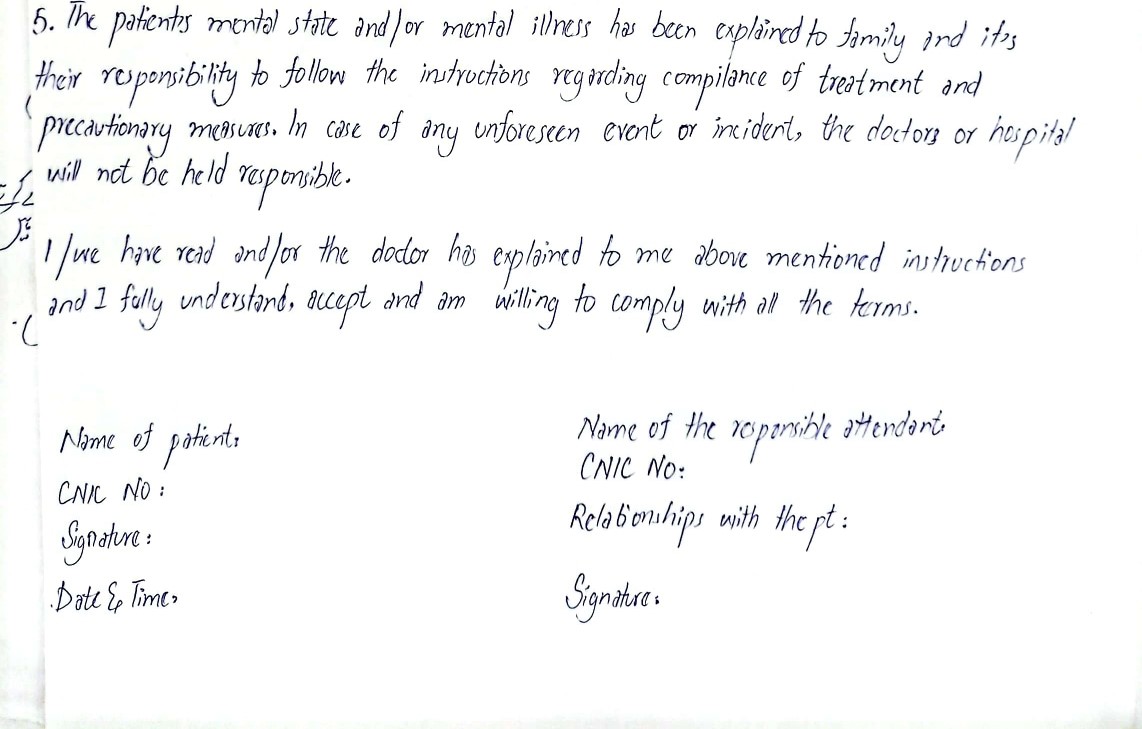 5. The patient's mental state and/or mental illness has been explained to family and it's
their responsibility to follow the instructions regarding compilance of treatment and
precautionary measures. In case of any unforeseen event or incident, the doctors or hospital
will not be held responsible.
I/we have read and/or the doctor has explained to me above mentioned instructions
and I fully understand, accept and am willing to comply with all the terms.
Name of patient:
CNIC NO:
Signature:
Date & Time:
Name of the responsible attendant:
CNIC NO:
Relationships with the pt:
Signature: